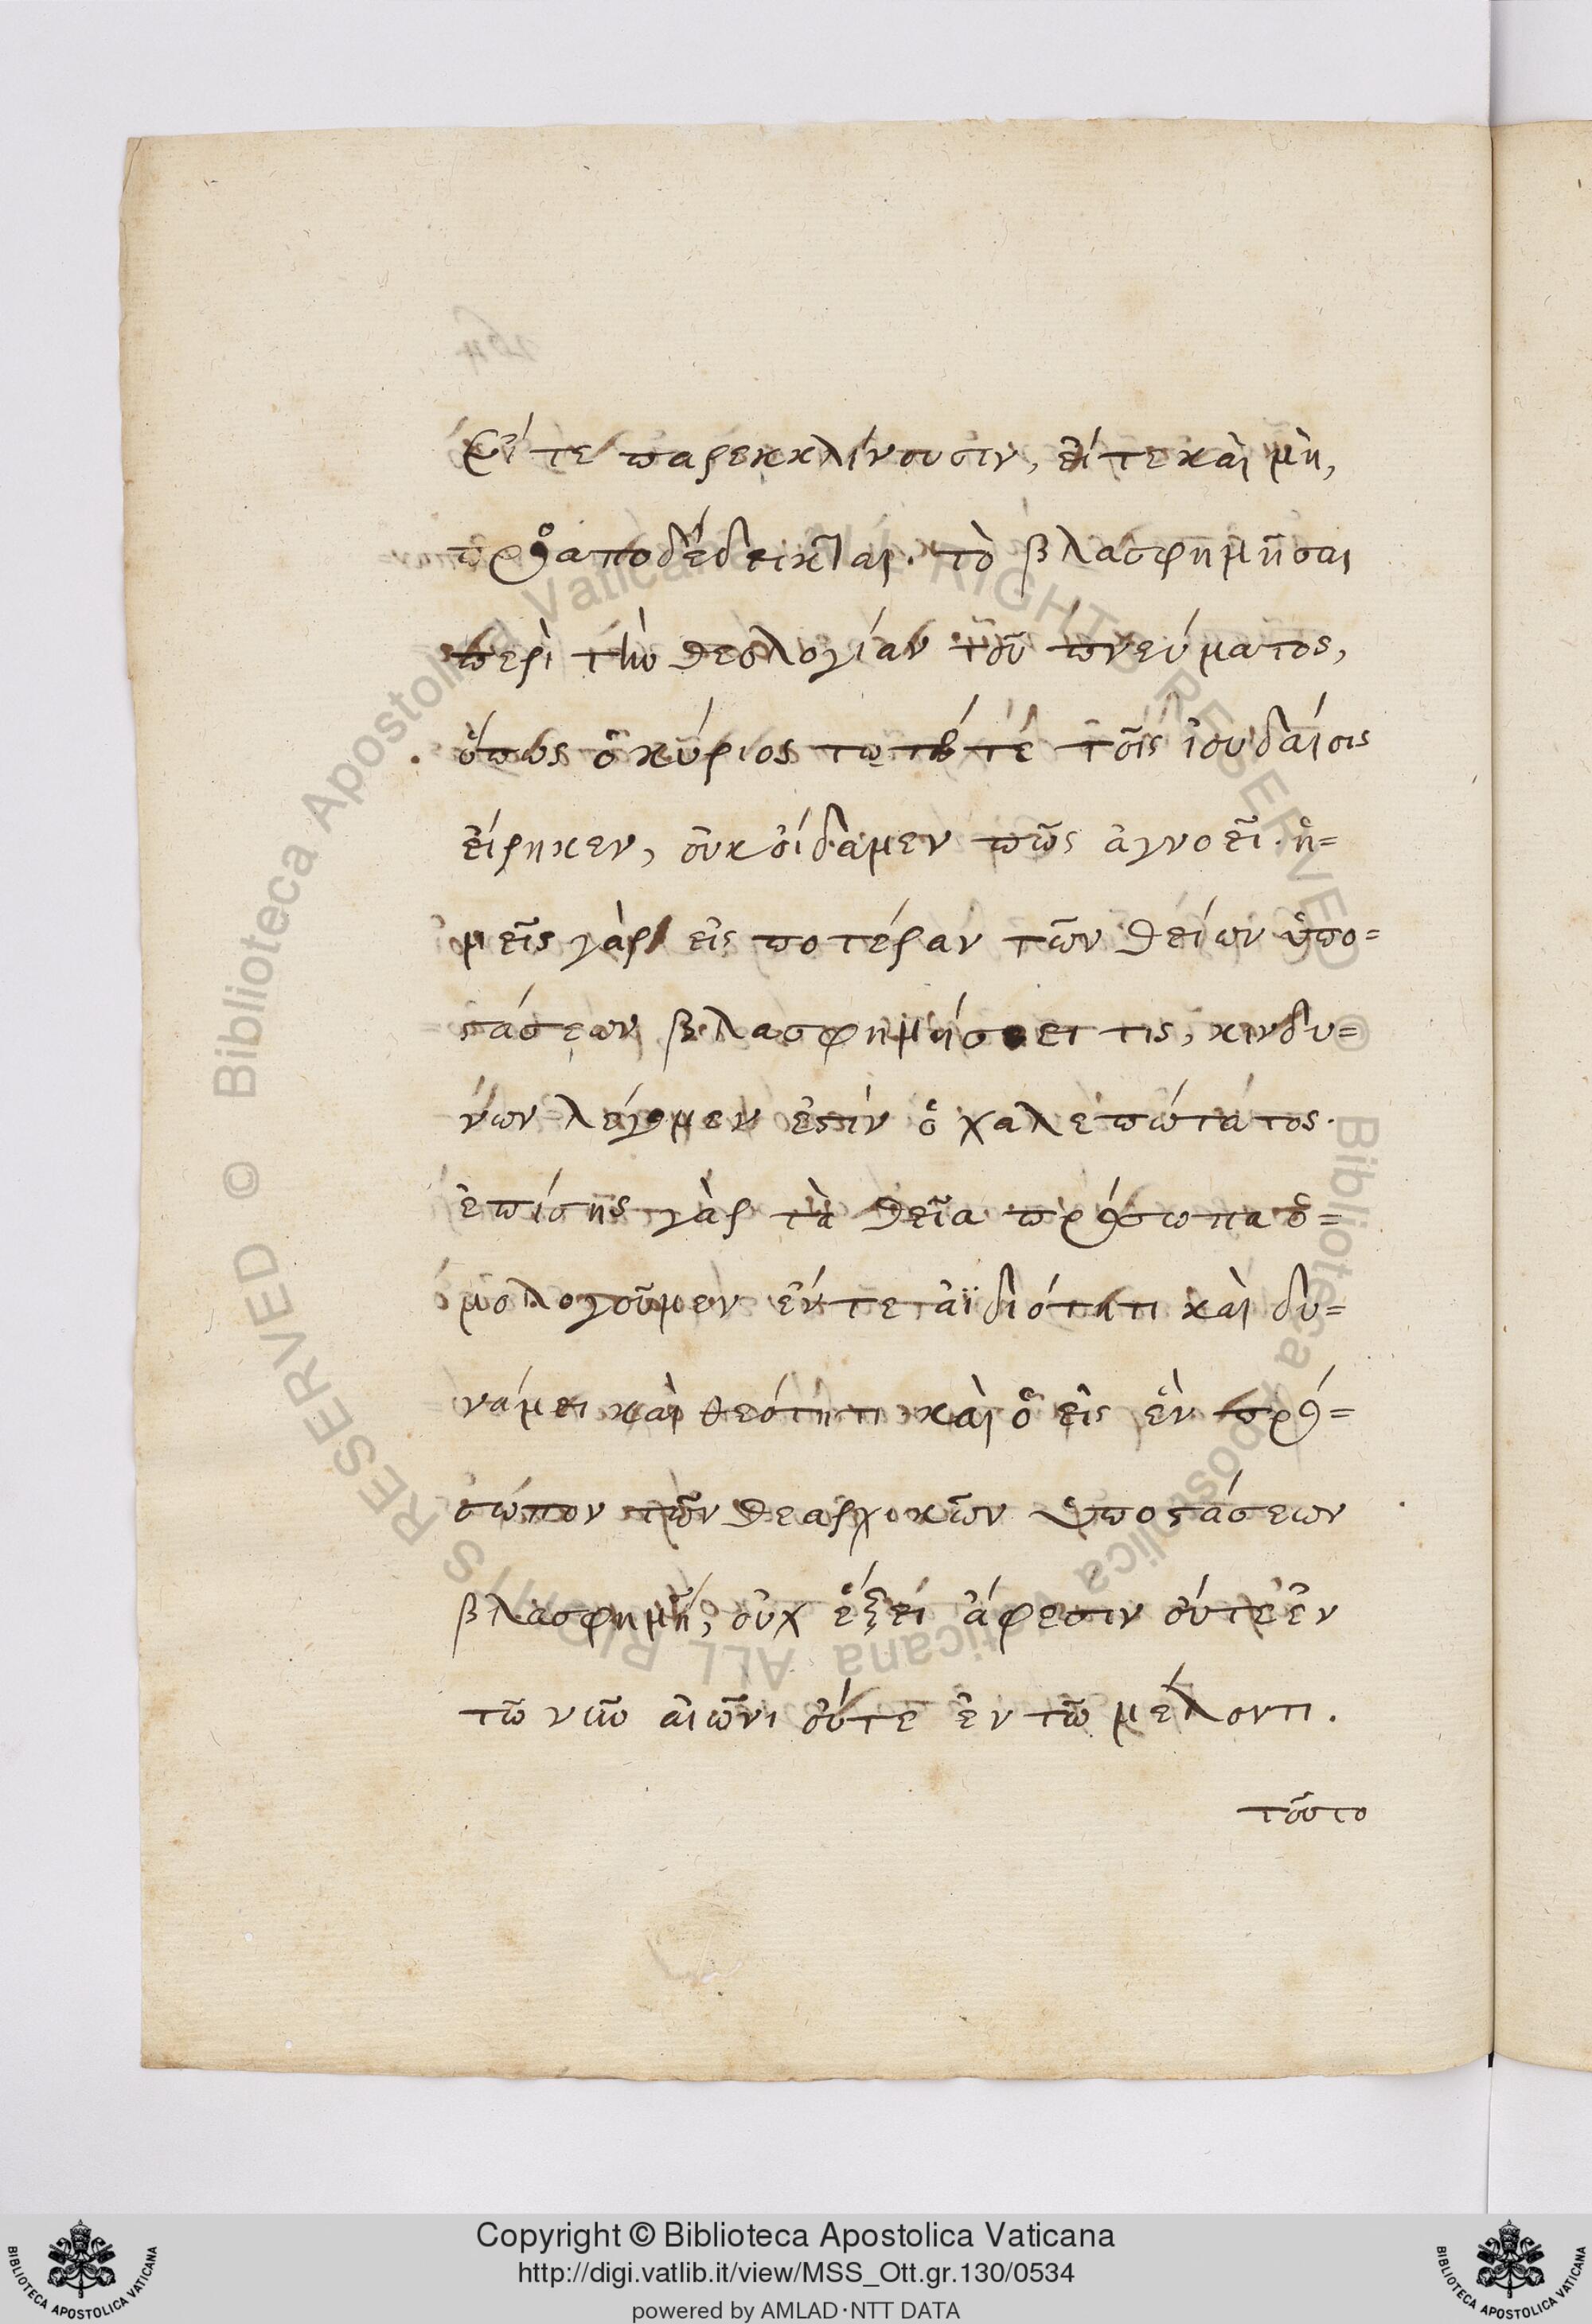 εἴτε παρεκκλίνουσιν, εἴτε καὶ μὴ,
προαποδέδεικται. τὸ βλασφημῆσαι
περὶ τὴν θεολογίαν τοῦ πνεύματος,
ὅπως ὁ κύριος τοῖς ἰουδαίοις
εἴρηκεν, οὐκ οἴδαμεν πῶς ἀγνοεῖ. ἡ=
μεῖς γὰρ εἰς ποτέραν τῶν θείων ὑπο=
στάσεων βλασφημήσει τις, κινδύ=
νων λέγομεν ἐστὶν ὁ χαλεπώτατος.
ἐπίσης γὰρ τὰ θεῖα πρόσωπα ὁ=
μολογοῦμεν ἔν τε ἀϊδιότητι καὶ δυ=
νάμει καὶ θεότητι καὶ ὁ εἰς ἓν πρό=
σωπον τῶν θεαρχικῶν ὑποστάσεων
βλασφημῇ, οὐχ ἕξει ἄφεσιν οὔτε ἐν
τῷ νῦν αἰῶνι οὔτε ἐν τῷ μέλοντι.
τοῦτο
© Biblioteca Apostolica Vaticana ALL RIGHTS RESERVED © Biblioteca Apostolica Vaticana ALL RIGHTS RESERVED
Copyright © Biblioteca Apostolica Vaticana
http://digi.vatlib.it/view/MSS_Ott.gr.130/0534
powered by AMLAD·NTT DATA
BIBLIOTECA APOSTOLICA VATICANA
BIBLIOTECA APOSTOLICA VATICANA